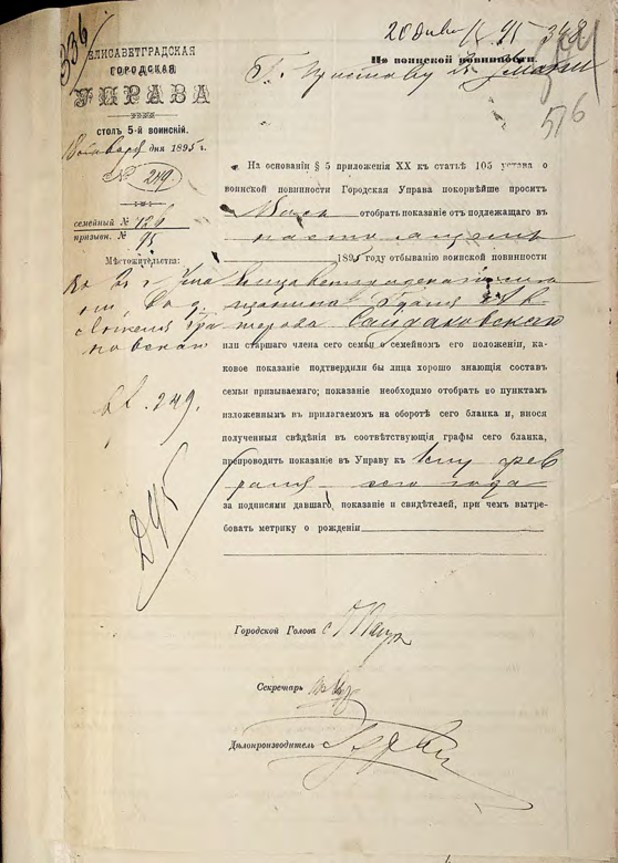 336
20 Янв 95 348
ЕЛИСАВЕТГРАДСКАЯ
ГОРОДСКАЯ
УПРАВА
столъ 5-й воинскій.
Января дня 1895 г.
№ 249.
семейный №
призывн. № 95
Мѣстожительства:
По воинской повинности.
Г. Приставу 2
576
На основаніи § 5 приложенія XX къ статьѣ 105 устава о
воинской повинности Городская Управа покорнѣйше проситъ
Васъ отобрать показаніе отъ подлежащаго въ
настоящемъ
1895 году отбыванію воинской повинности
Елисаветградскаго
мѣщанина
Сайдаковскаго
или старшаго члена сего семьи о семейномъ его положеніи, ка-
ковое показаніе подтвердили бы лица хорошо знающія составъ
семьи призываемаго; показаніе необходимо отобрать по пунктамъ
изложеннымъ въ прилагаемомъ на оборотѣ сего бланка и, внося
полученныя свѣдѣнія въ соотвѣтствующія графы сего бланка,
препроводить показаніе въ Управу къ 1му фев
раля сего года
за подписями давшаго, показаніе и свидѣтелей, при чемъ вытре-
бовать метрику о рожденіи
249.
Д 95
Городской Голова
Секретарь
Дѣлопроизводитель